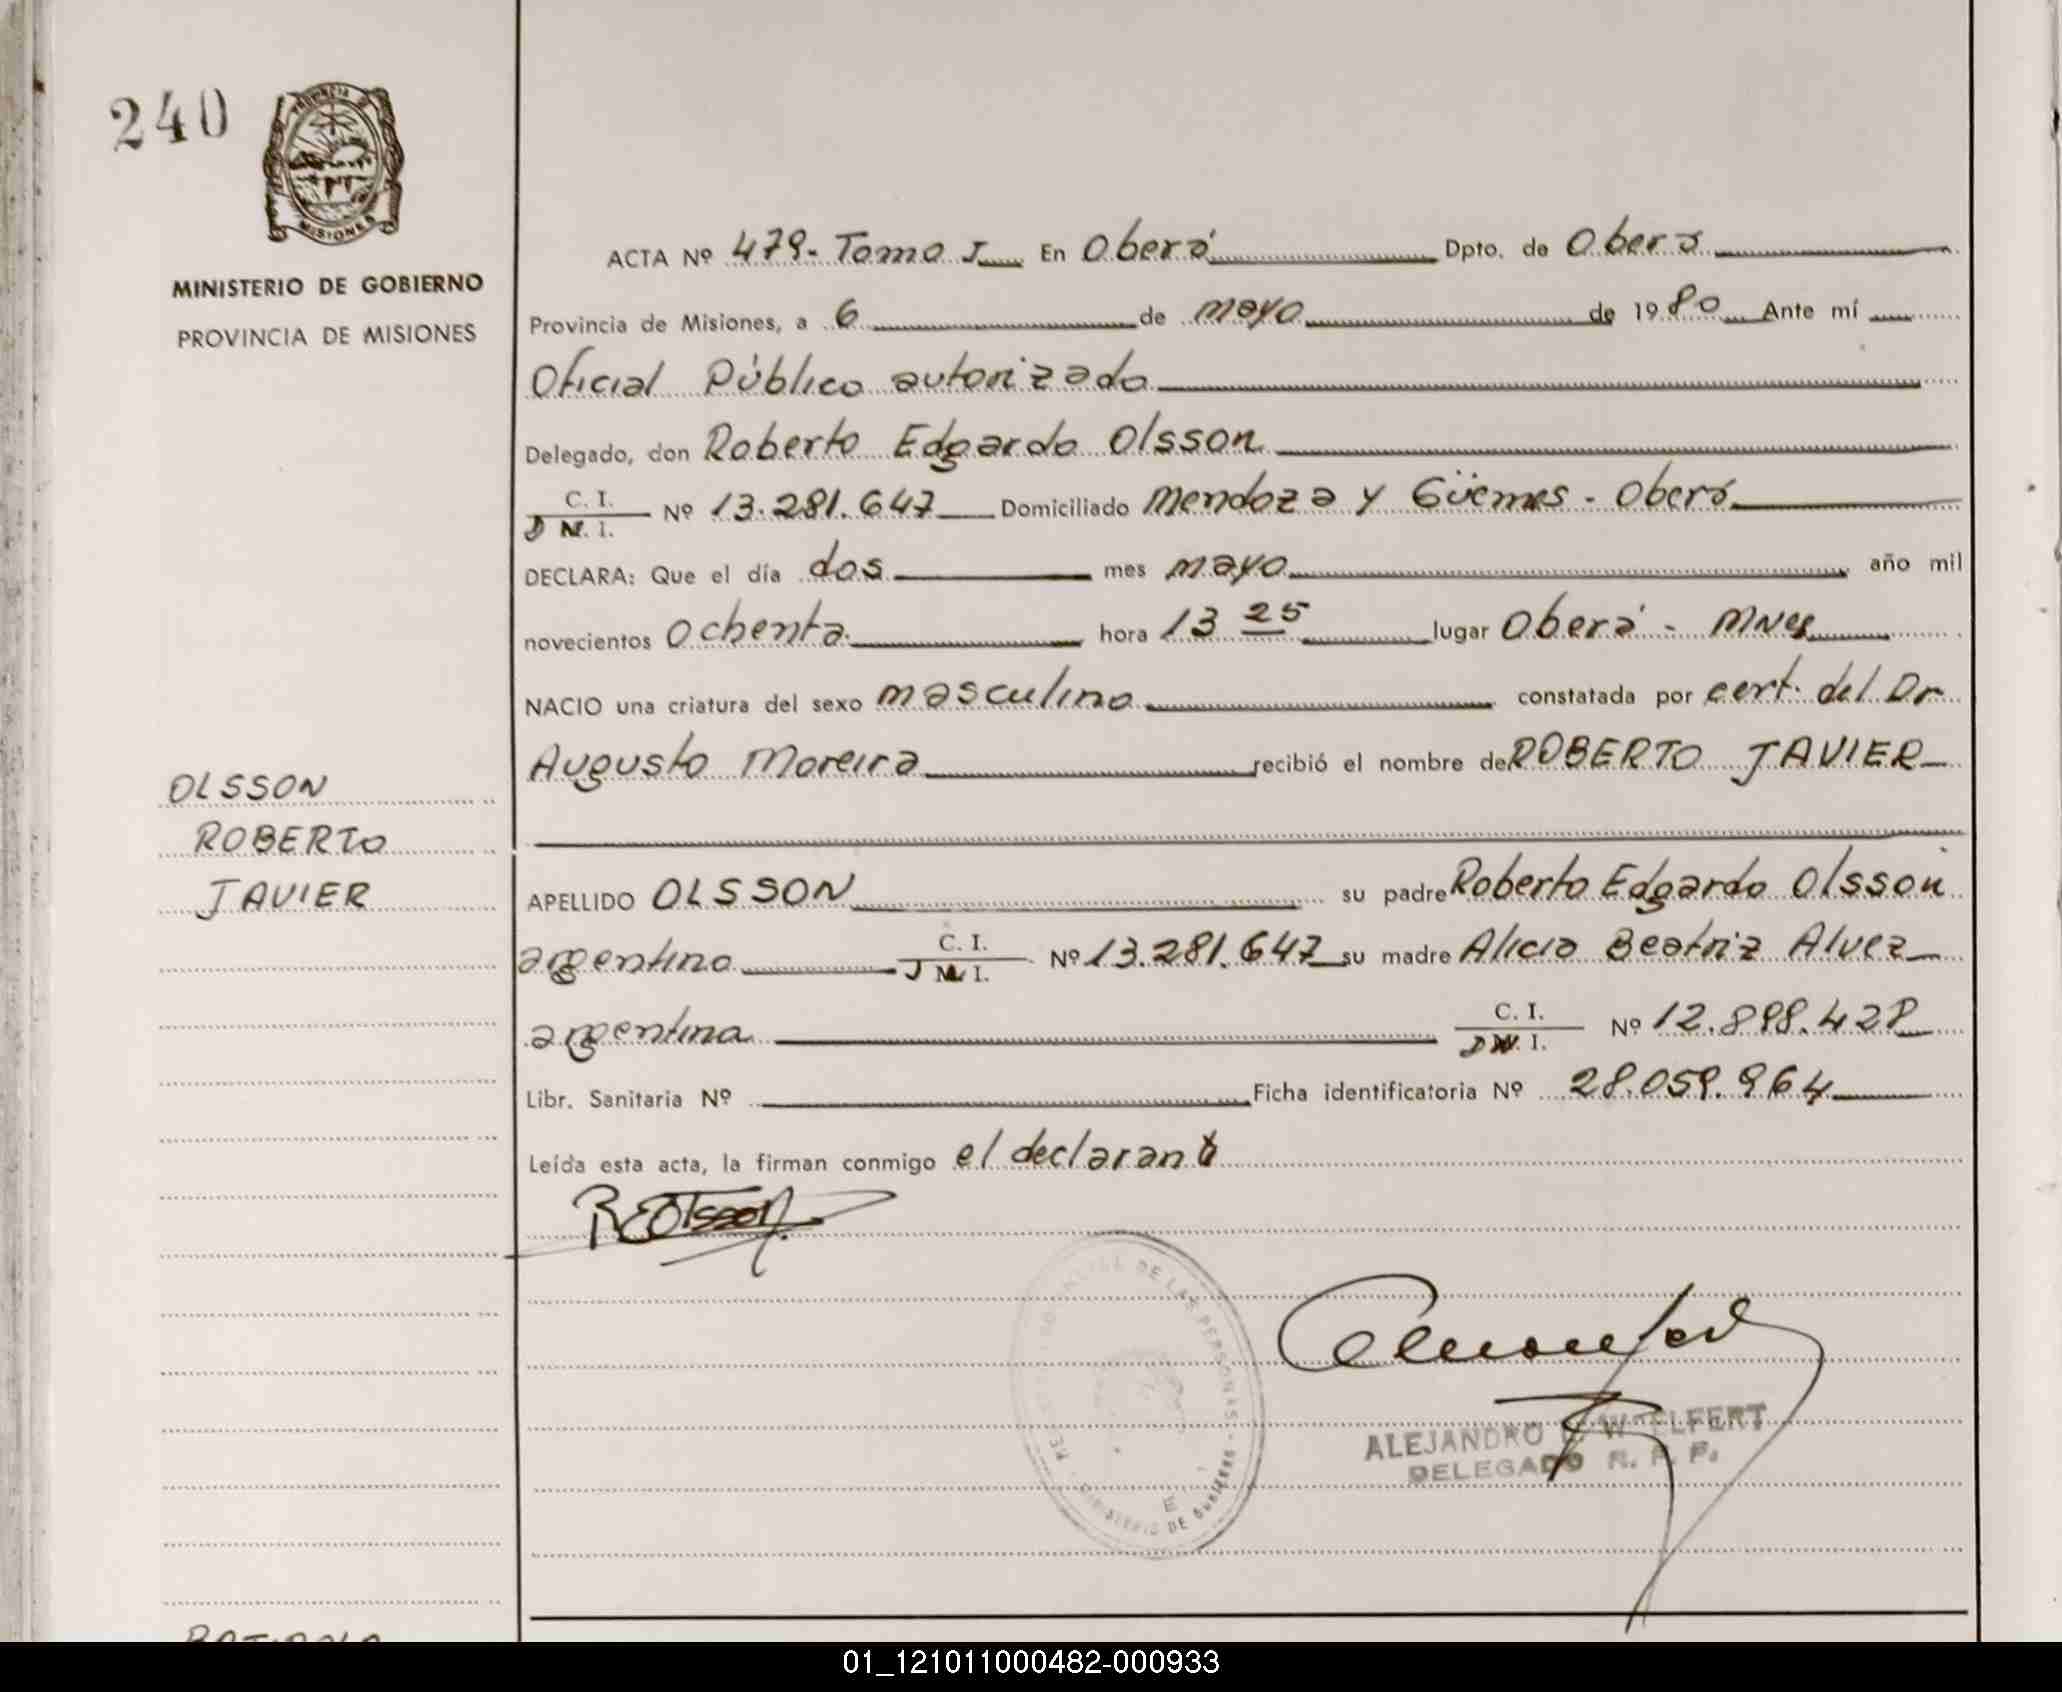 240
PROVINCIA DE
MISIONES
MINISTERIO DE GOBIERNO
PROVINCIA DE MISIONES
OLSSON
ROBERTO
JAVIER
ACTA Nº 479- Tomo I En Oberá Dpto. de Oberá
Provincia de Misiones, a 6 de mayo de 1980 Ante mí
Oficial Público autorizado
Delegado, don Roberto Edgardo Olsson
C. I.
D N. I. Nº 13.281.647 Domiciliado Mendoza y Güemes - Oberá
DECLARA: Que el día dos mes mayo año mil
novecientos ochenta hora 13 25 lugar Oberá - Mnes
NACIO una criatura del sexo masculino constatada por cert. del Dr
Augusto Moreira recibió el nombre de ROBERTO JAVIER
APELLIDO OLSSON su padre Roberto Edgardo Olsson
argentino C. I. Nº 13.281.647 su madre Alicia Beatriz Alvez
argentina C. I.
D N. I. Nº 12.898.428
Libr. Sanitaria Nº Ficha identificatoria Nº 28.059.964
Leída esta acta, la firman conmigo el declarant
REOlsson
DE LAS PERSONAS
MINISTERIO DE GOBIERNO
ALEJANDRO
DELEGADO R. P.
01_121011000482-000933